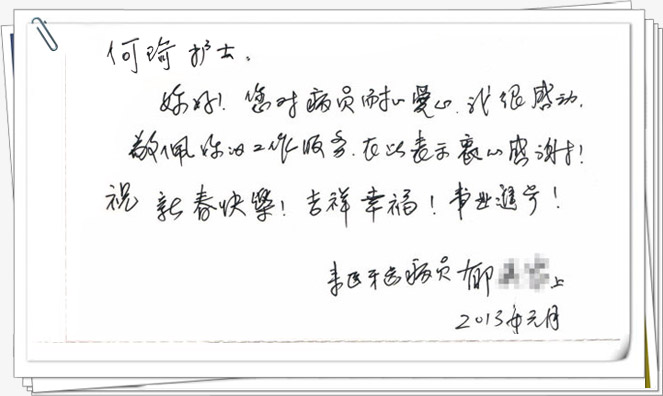 何瑜护士，
妳好！您对病员耐心爱心，我很感动，
敬佩妳的工作服务，在此表示衷心感谢！
祝新春快樂！吉祥幸福！事业進步！
来医牙齿病员郁 上
2013年元月